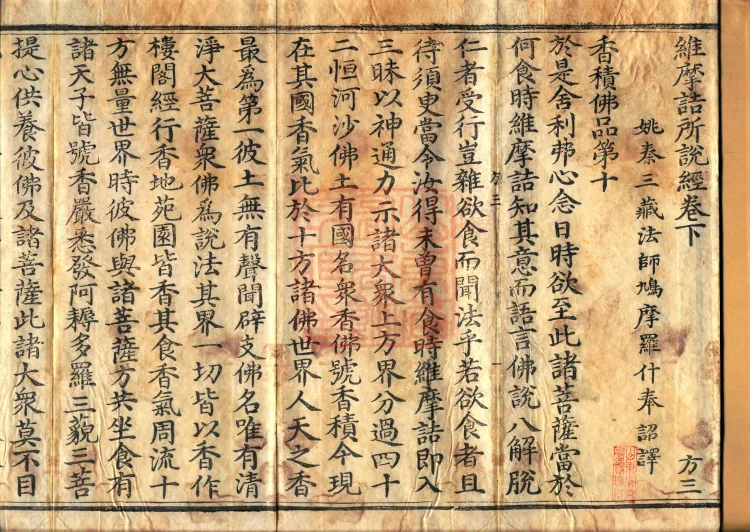 維摩詰所說經卷下 方三
姚秦三藏法師鳩摩羅什奉 詔譯
香積佛品第十
於是舍利弗心念日時欲至此諸菩薩當於
何食時維摩詰知其意而語言佛說八解脫
仁者受行豈雜欲食而聞法乎若欲食者且
方三
待須臾當令汝得未曾有食時維摩詰即入
三昧以神通力示諸大衆上方界分過四十
二恒河沙佛土有國名衆香佛號香積今現
在其國香氣比於十方諸佛世界人天之香
最為第一彼土無有聲聞辟支佛名唯有清
淨大菩薩衆佛爲說法其界一切皆以香作
樓閣經行香地苑園皆香其食香氣周流十
方無量世界時彼佛與諸菩薩方共坐食有
諸天子皆號香嚴悉發阿耨多羅三藐三菩
提心供養彼佛及諸菩薩此諸大衆莫不目